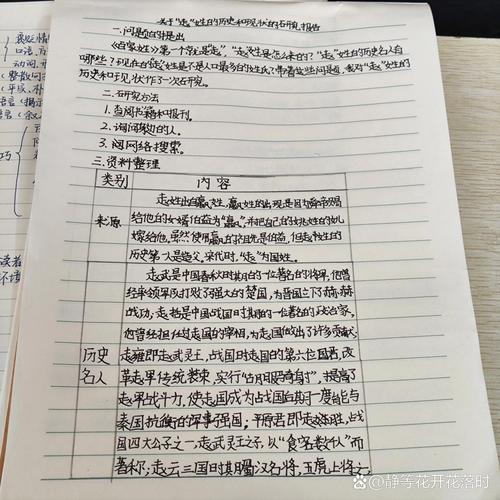 关于"赵"姓的历史和现状的研究报告
一.问题的提出
《百家姓》第一个就是"赵","赵"姓是怎么来的?"赵"姓的历史名人有
哪些?现在的"赵"姓是不是人口最多的姓氏?带着这些问题,我对"赵"姓的
历史和现状作了一次研究。
二.研究方法
1.查阅书籍和报刊。
2.询问身边的人。
3.阅网络搜索。
三.资料整理
类别 内容
来源
赵姓出自嬴姓,嬴姓的出现是因为舜帝赐
给他的女婿伯益为"嬴",并把自己的姚姓的女儿
嫁给他,虽然使用嬴的祖先是伯益,但赵姓的
历史第一人是造父,宋代时,"赵"为国姓。
历史
名人
赵武是中国春秋时期的一位著名的将军,他曾
经率领军队打败了强大的楚国,为晋国立下了赫赫
战功,赵括是中国战国时期的一位著名的政治家。
他曾经担任过赵国的宰相,为赵国做出了许多贡献,
赵雍即赵武灵王,战国时赵国的第六位国君,改
革赵军传统装束,实行"胡服骑射",提高了
赵军战斗力,使赵国成为战国后期一度能与
秦国抗衡的军事强国;平原君即赵胜,战
国四大公子之一,赵武灵王之子,以"食客数千人"而
著称;赵云三国时期蜀汉名将,五虎上将之
褒贬情
口语、
动词、
(整散句
(平实、朴
(揭示
(叙
巧
读者
环境
静等花开花落时